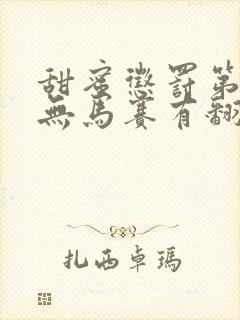 甜蜜懲罰第
無馬賽有翻
扎西卓瑪